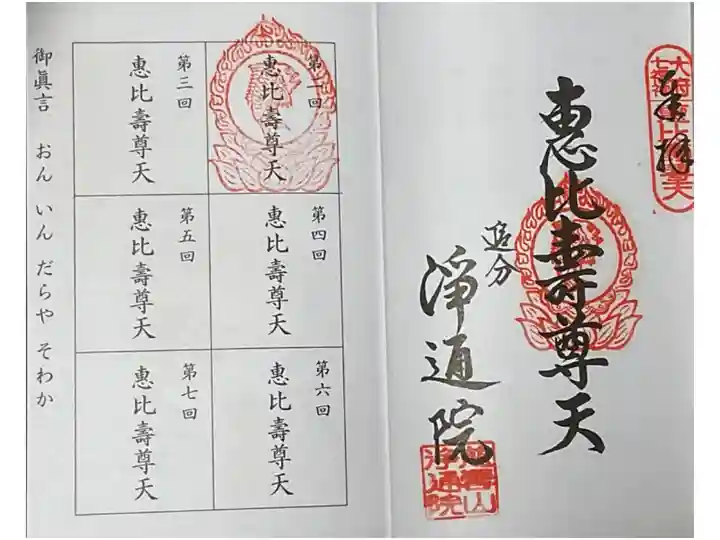 奉拝
惠比壽尊天
追分
淨通院
淨通院
第二回
惠比壽尊天
第三回
惠比壽尊天
第四回
惠比壽尊天
第五回
惠比壽尊天
第六回
惠比壽尊天
第七回
惠比壽尊天
御眞言　おん　いん　だらや　そわか